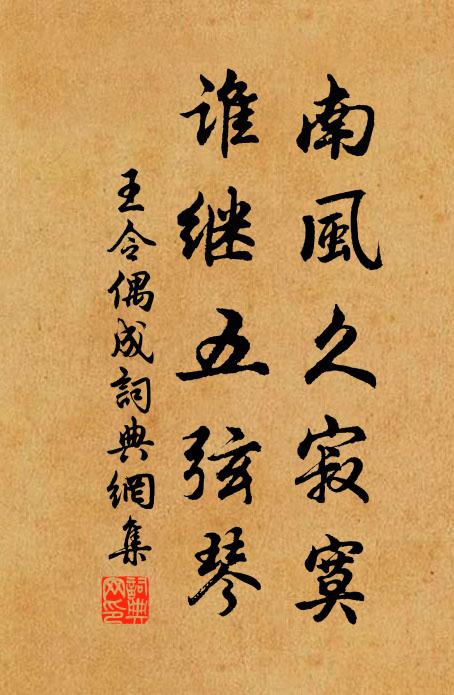 南風久寂寞
谁继五弦琴
王令偶成詞典網集
詞典網印